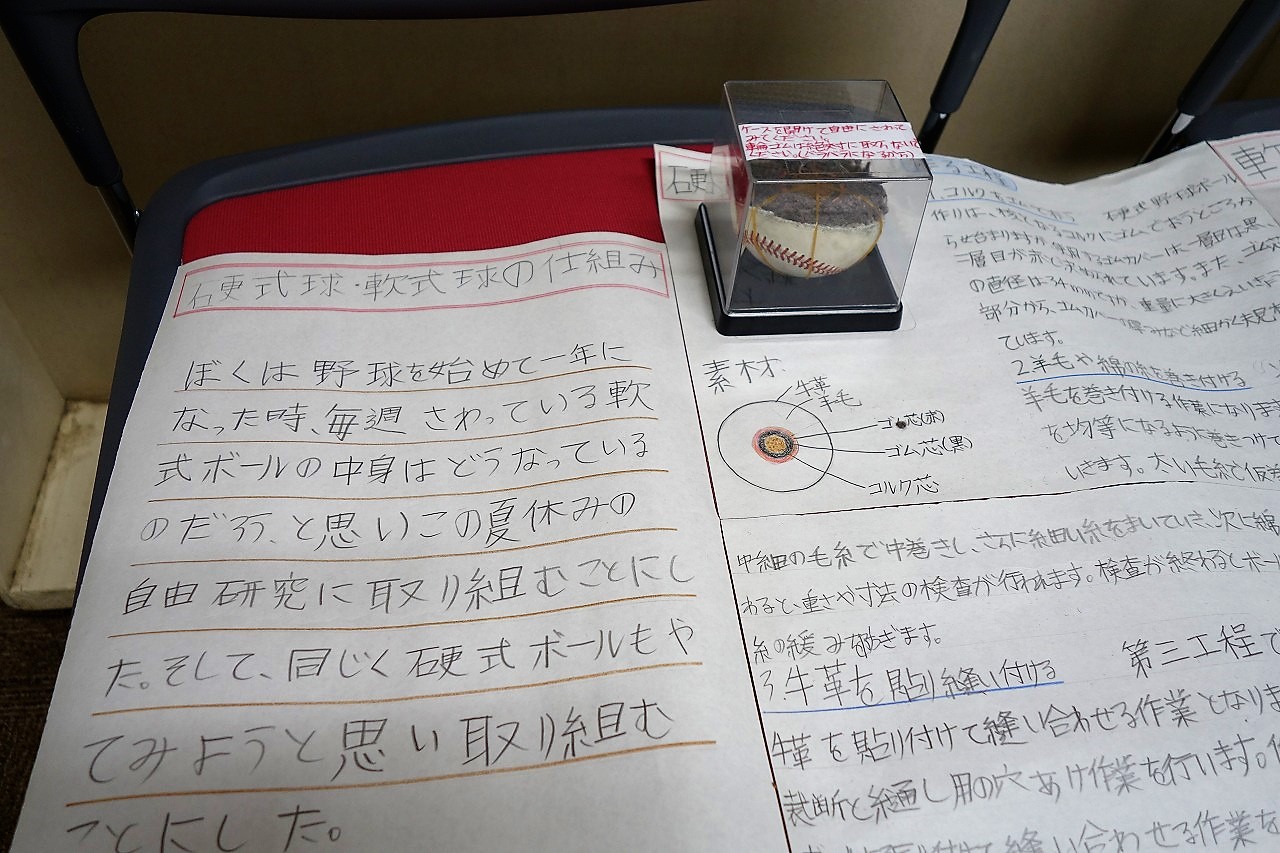 硬式球・軟式球の仕組み
ぼくは野球を始めて一年に
なった時、毎週さわっている軟
式ボールの中身はどうなっている
のだろう、と思いこの夏休みの
自由研究に取り組むことにし
た。そして、同じく硬式ボールもや
てみようと思い取り組む
ことにした。
硬
ケースを開けて自由にさわって
みてください。
輪ゴムは絶対に取らないで
ください。(バラバラになる分)
素材
牛革
羊毛
ゴム芯(赤)
ゴム芯(黒)
コルク芯
る工程
硬式野球ボール
作りは、
部分から、
ています。
2羊毛や綿の糸を巻き付ける
羊毛を巻き付ける作業になります
を均等になるよう巻きつけて
いきます。太い毛糸で
中細の毛糸で中巻きし、さらに細い糸をまいていき、次に綿
わると、重さや寸法の検査が行われます。検査が終わるとボー
糸の緩みを防ぎます。
3牛革を貼り縫い付ける
第三工程で
牛革を貼り付けて縫い合わせる作業となりま
裁断と縫通し用の穴あけ作業を行います。
縫い合わせる作業を
軟